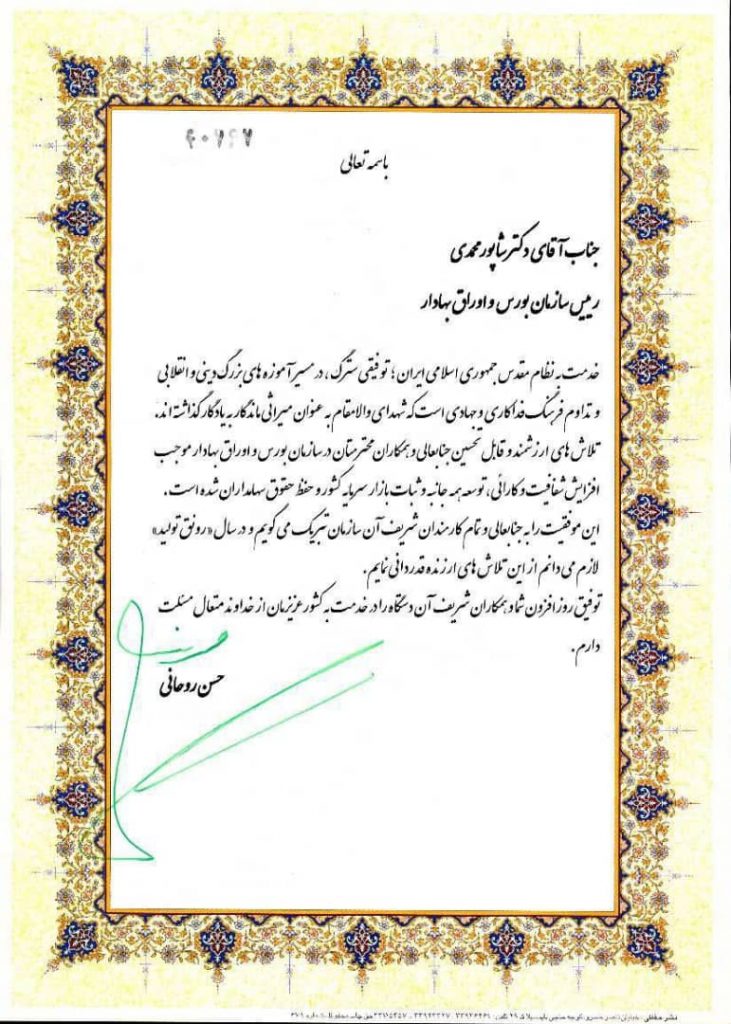 ۴۰۷۶۷
باسمه تعالی
جناب آقای دکتر شاپور محمدی
رییس سازمان بورس و اوراق بهادار
خدمت به نظام مقدس جمهوری اسلامی ایران؛ توفیقی سترگ، در مسیر آموزه های بزرگ دینی و انقلابی
و تداوم فرهنگ فداکاری و جهادی است که شهدای والامقام به عنوان میراثی ماندگار به یادگار گذاشته اند.
تلاش های ارزشمند و قابل تحسین جنابعالی و همکاران محترمتان در سازمان بورس و اوراق بهادار موجب
افزایش شفافیت و کارائی، توسعه همه جانبه و ثبات بازار سرمایه کشور و حفظ حقوق سهامداران شده است.
این موفقیت را به جنابعالی و تمام کارمندان شریف آن سازمان تبریک می گویم و در سال «رونق تولید»
لازم می دانم از این تلاش های ارزنده قدردانی نمایم.
توفیق روزافزون شما و همکاران شریف آن دستگاه را در خدمت به کشور عزیزمان از خداوند متعال مسئلت
دارم.
حسن روحانی